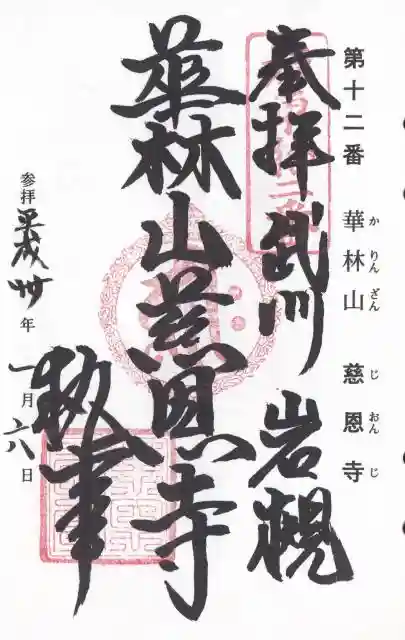 第十二番 華林山 慈恩寺
か りん ざん じ おん じ
奉拝 武州 岩槻
華林山慈恩寺
執事
参拝 平成卅年一月六日